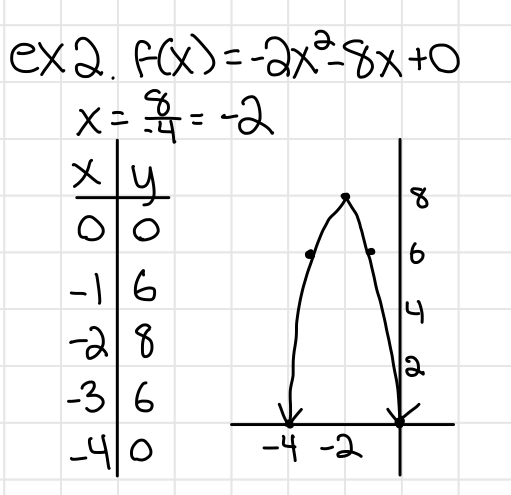 ex 2. f(x) = -2x²-8x+0
x = 8/-4 = -2
x y
0 0
-1 6
-2 8
-3 6
-4 0
8
6
4
2
-4 -2